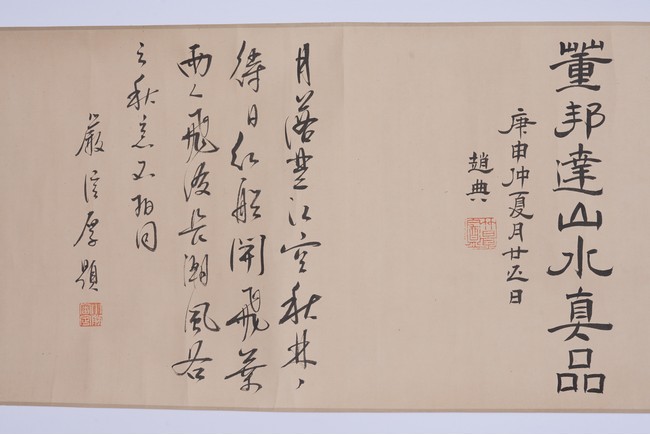 董邦達山水真品
庚申仲夏月廿五日
趙典
月落楚江空秋林
待日紅船開飛葉
雨飛波長潮風
秋意不相同
嚴信厚題